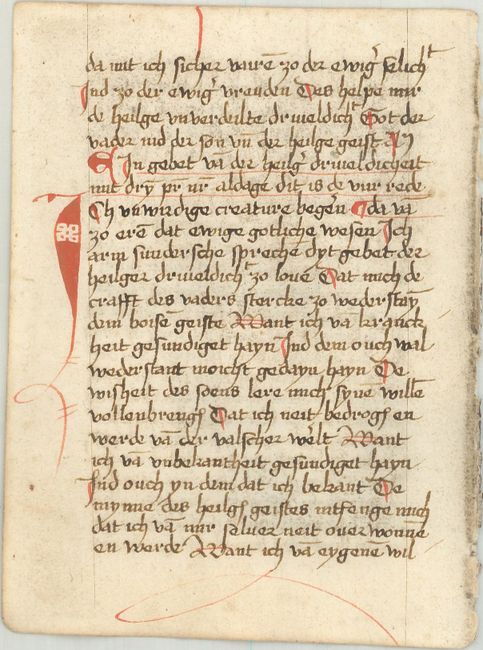 da mit ich sicher vairē zo der ewig᷒ selich᷑t
Ind zo der ewig᷒ vreuden Des helpe mir
de heilge vnverdeilte driueldich᷑t Got der
vader ind der son vn̄ der heilge geist
Ein gebet vā der heilg᷒ driueldicheit
mit dry pr nr̄ aldage dit is de vur rede
Ich vnwirdige creature begerē da vā
zo erē dat ewige gotliche wesen Ich
arm sundersche spreche dyt gebet der
heilger driueldich᷑t zo louē Dat mich de
crafft des vaders stercke zo wederstayn
dem boisē geiste Want ich vā kranck
heit gesundiget hayn Ind dem ouch wal
wederstant moicht gedayn hayn De
wisheit des soens lere mich synē willē
vollenbreng᷒ Dat ich neit bedrog᷒ en
werde vā der valscher werlt Want
ich vā vnbekantheit gesundiget hayn
Ind ouch yn dem dat ich bekant De
mynne des heilg᷒ geistes intfenge mich
dat ich vā mir seluer neit ouerwonnē
en werde Want ich vā eygenē wil